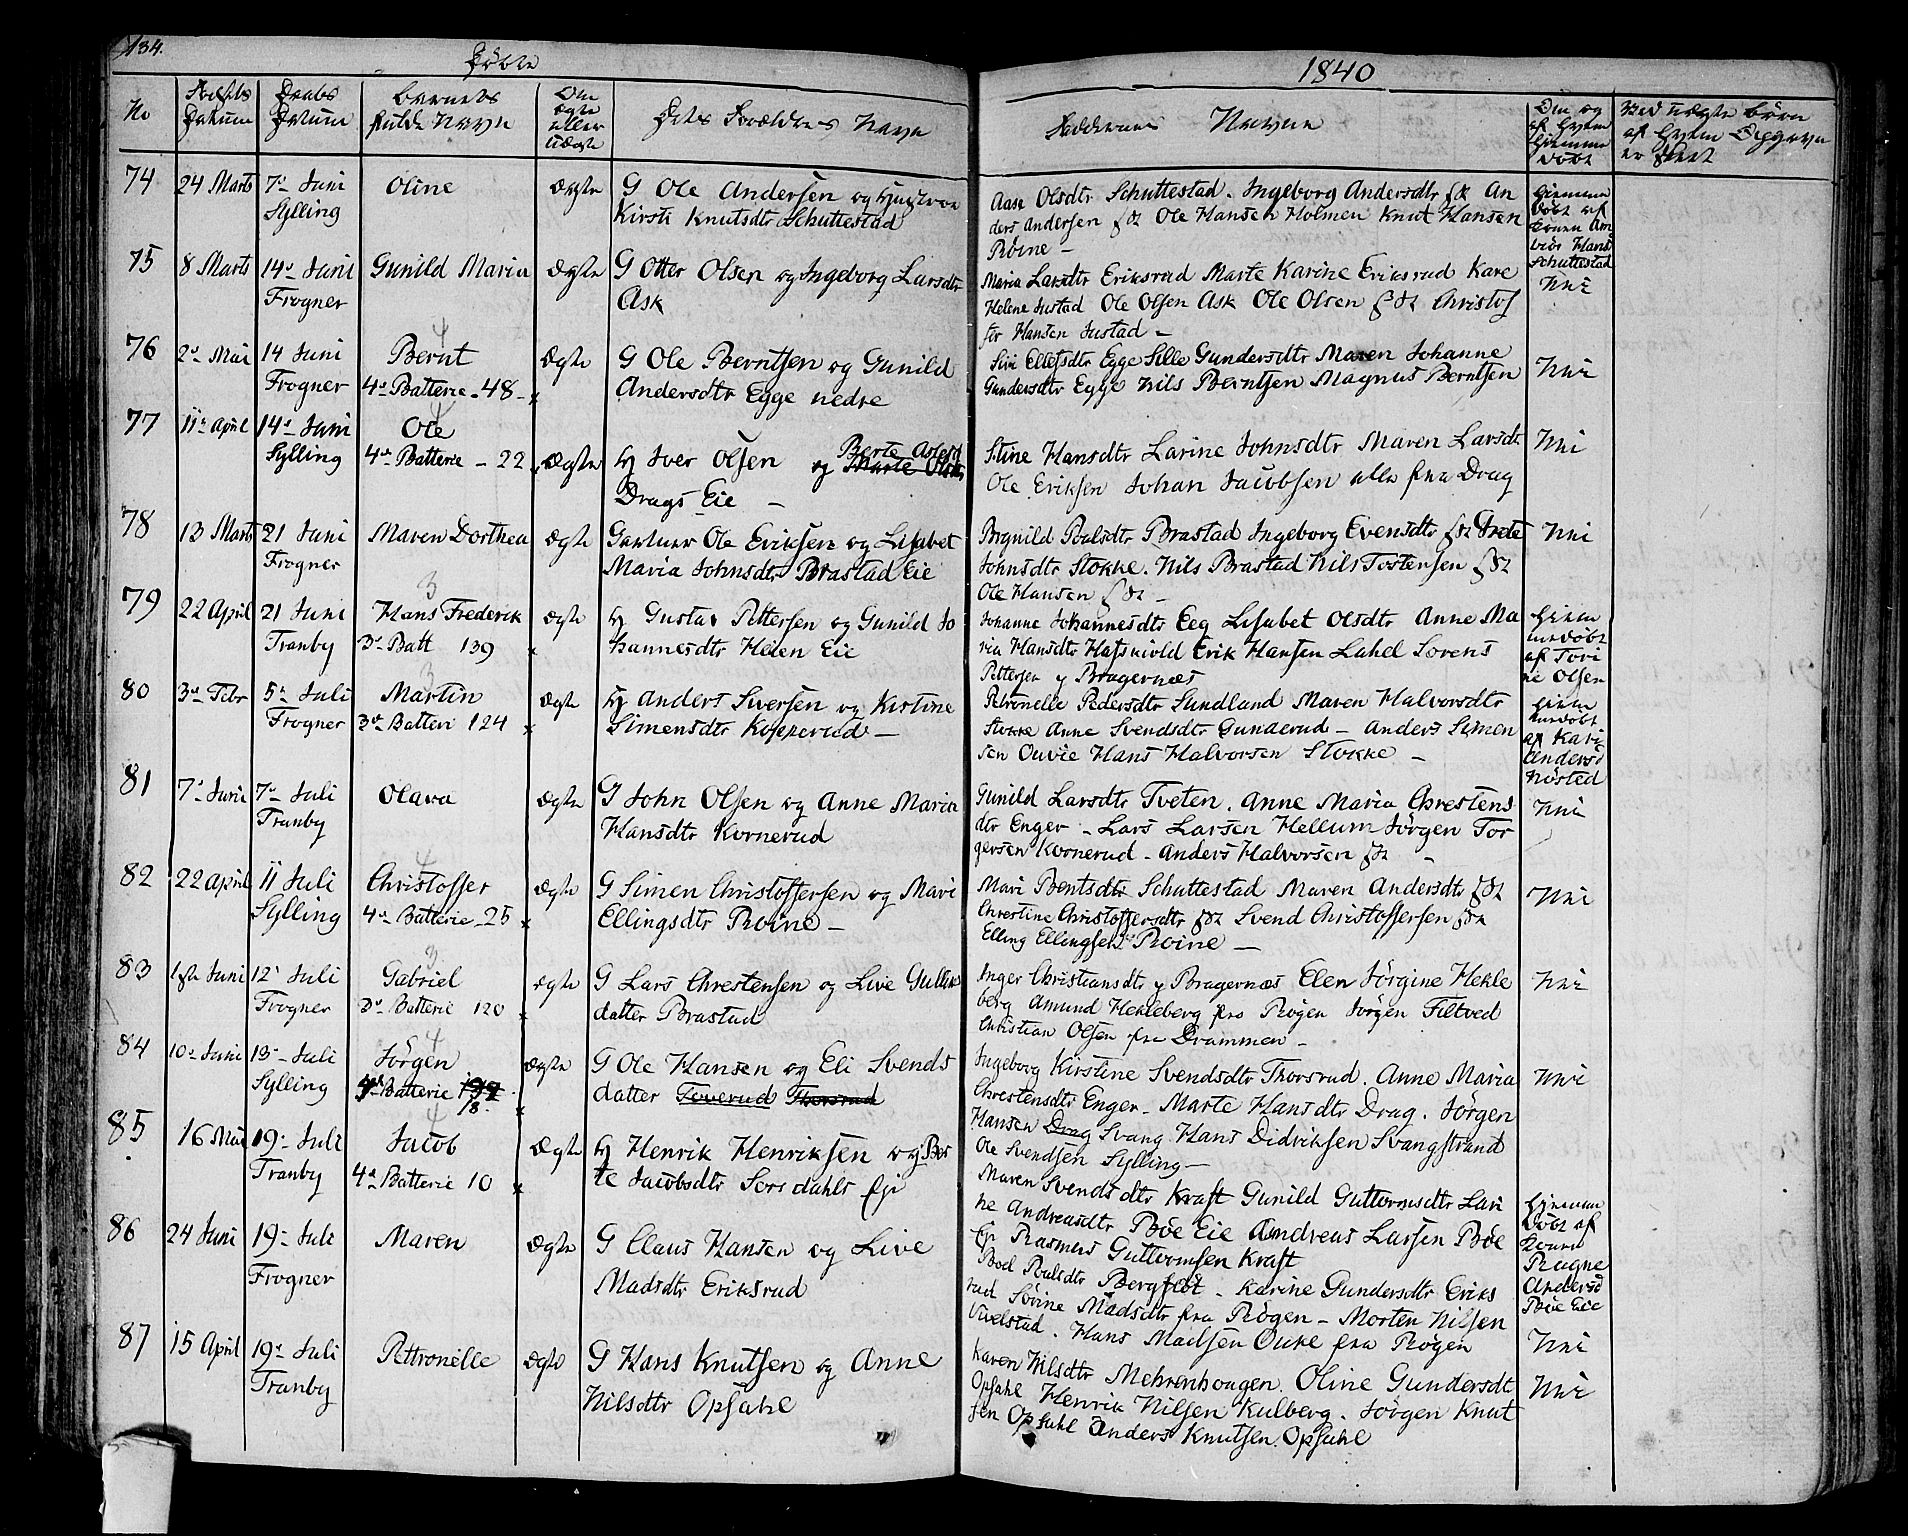 134.
Døbte
1840
No
Fødsels Datum
Daabs Datum
Barnets fulde Navn
Om ægte eller uægte
Dets Forældres Navn
Faddernes Navne
Om og af hvem hjemmedøbt
Ved uægte Børn af hvem Opgaven er skeet
74
24 Marts
7de Juni
Sylling
Oline
Ægte
G Ole Andersen og Hustroe
Kirsti Knutsdtr Schuttestad
Aase Olsdtr Schuttestad. Ingeborg Andersdtr An
ders Andersen Ole Hansen Holmen Knut Hansen
Roine -
hjemme
døbt af
Konen
Hans
Schuttestad
75
8 Marts
14de Juni
Frogner
Gunild Maria
Ægte
G Otter Olsen og Ingeborg Larsdtr
Ask
Maria Larsdtr Eriksrud Marte Karine Eriksrud Kare
Helene Justad Ole Olsen Ask Ole Olsen Christof
fer Hansen Justad -
Nei
76
2de Mai
14 Juni
Frogner
4
Bernt
4de Batterie - 48 - x
Ægte
G Ole Berntsen og Gunild
Andersdtr Egge nedre
Siri Ellefsdtr Egge Sille Gundersdtr Maren Johanne
Gundersdtr Egge Nils Berntsen Magnus Berntsen
Nei
77
11te April
14de Juni
Sylling
4
Ole
4de Batterie - 22
Ægte
Hj Iver Olsen og Marte Olsdtr
Berte
Drags Eie -
Stine Hansdtr Larine Johnsdtr Maren Larsdt
Ole Eriksen Johan Jacobsen alle fra Drag
Nei
78
13 Marts
21 Juni
Frogner
Maren Dorthea
Ægte
Gartner Ole Eriksen og Lisabet
Maria Johnsdtr Brastad Eie
Bognild Poulsdtr Brastad Ingeborg Evensdtr Grete
Johnsdtr Stokke. Nils Brastad Nils Tostensen
Ole Hansen
Nei
79
22 April
21 Juni
Tranby
3
Hans Frederik
3de Batt 139 x
Ægte
Hj Gustav Pettersen og Gunild Jo
hannesdtr Heien Eie
Johanne Johannesdtr Eeg Lisabet Olsdtr Anne Ma
ria Hansdtr Erik Hansen Lahel Sorens
Pettersen y Bragernæs
hjem
medøbt
af Tori
ne Olsen
80
3de Febr
5te Juli
Frogner
3
Martin
3de Batteri 124 x
Ægte
Hj Anders Siversen og Kistine
Simensdtr Kopperud -
Petronelle Pedersdtr Sundland Maren Halvorsdtr
Stokke Anne Svendsdtr Gunnerud - Anders Simen
sen Ouvie Hans Halvorsen Stokke -
hjem
medøbt
af Kari
Andersd
Nøsted
81
7de Juni
7de Juli
Tranby
Olava
Ægte
G John Olsen og Anne Maria
Hansdtr Kornerud
Gunild Larsdtr Tveten. Anne Maria Chrestens
dtr Enger - Lars Larsen Hellum Jørgen Tor
gersen Kornerud - Anders Halvorsen -
Nei
82
22 April
11 Juli
Sylling
4
Christoffer
4de Batterie - 25 x
Ægte
G Simen Christoffersen og Mari
Ellingsdtr Roine -
Mari Bentsdtr Schuttestad Maren Andersdtr
Chrestine Christoffersdtr Svend Christoffersen
Elling Ellingsen Roine -
Nei
83
1ste Juni
12te Juli
Frogner
3
Gabriel
3de Batterie 120 x
Ægte
G Lars Chrestensen og Live Gulliks
datter Brastad
Inger Christiansdtr y Bragernæs Elen Jörgine Hekle
berg Amund Hekleberg fra Røgen Jörgen Filtved
Christian Olsen fra Drammen -
Nei
84
10de Juni
13de Juli
Sylling
4
Jörgen
4de Batterie
18. x
Ægte
G Ole Hansen og Eli Svends
datter Toverud Thorsrud
Ingeborg Kirstine Svendsdtr Thorsrud. Anne Maria
Chrestensdtr Enger - Marte Hansdtr Drag. Jörgen
Hansen Drag Svang Hans Didriksen Svangstrand
Ole Svendsen Sylling -
Nei
85
16 Mai
19de Juli
Tranby
4
Jacob
4de Batterie 10 x
Ægte
Hj Henrik Henriksen og Ber
te Jacobsdtr Sørsdahls Eje
Maren Svendsdtr Kraft Gunild Guttormsdtr Lari
ne Andreasdtr Böe Eie Andreas Larsen Böe
Ej Rasmus Guttormsen Kraft
hjemme
døbt af
Konen
Ragne
Andersd
Böe Eie
86
24 Juni
19de Juli
Frogner
Maren
Ægte
G Claus Hansen og Live
Madsdtr Eriksrud
Boel Poulsdtr Bergflöt - Karine Gundersdtr Eriks
rud Sörine Madsdtr fra Røgen - Morten Nilsen
Vivelstad. Hans Madsen Ouke fra Røgen
Nei
87
15 April
19de Juli
Tranby
Pettronelle
Ægte
G Hans Knutsen og Anne
Nilsdtr Opsahl
Karen Nilsdtr Mehrenhougen. Oline Gundersdt
Opsahl Henrik Nilsen Kulberg. Jörgen Knut
sen Opsahl Anders Knutsen. Opsahl
Nei